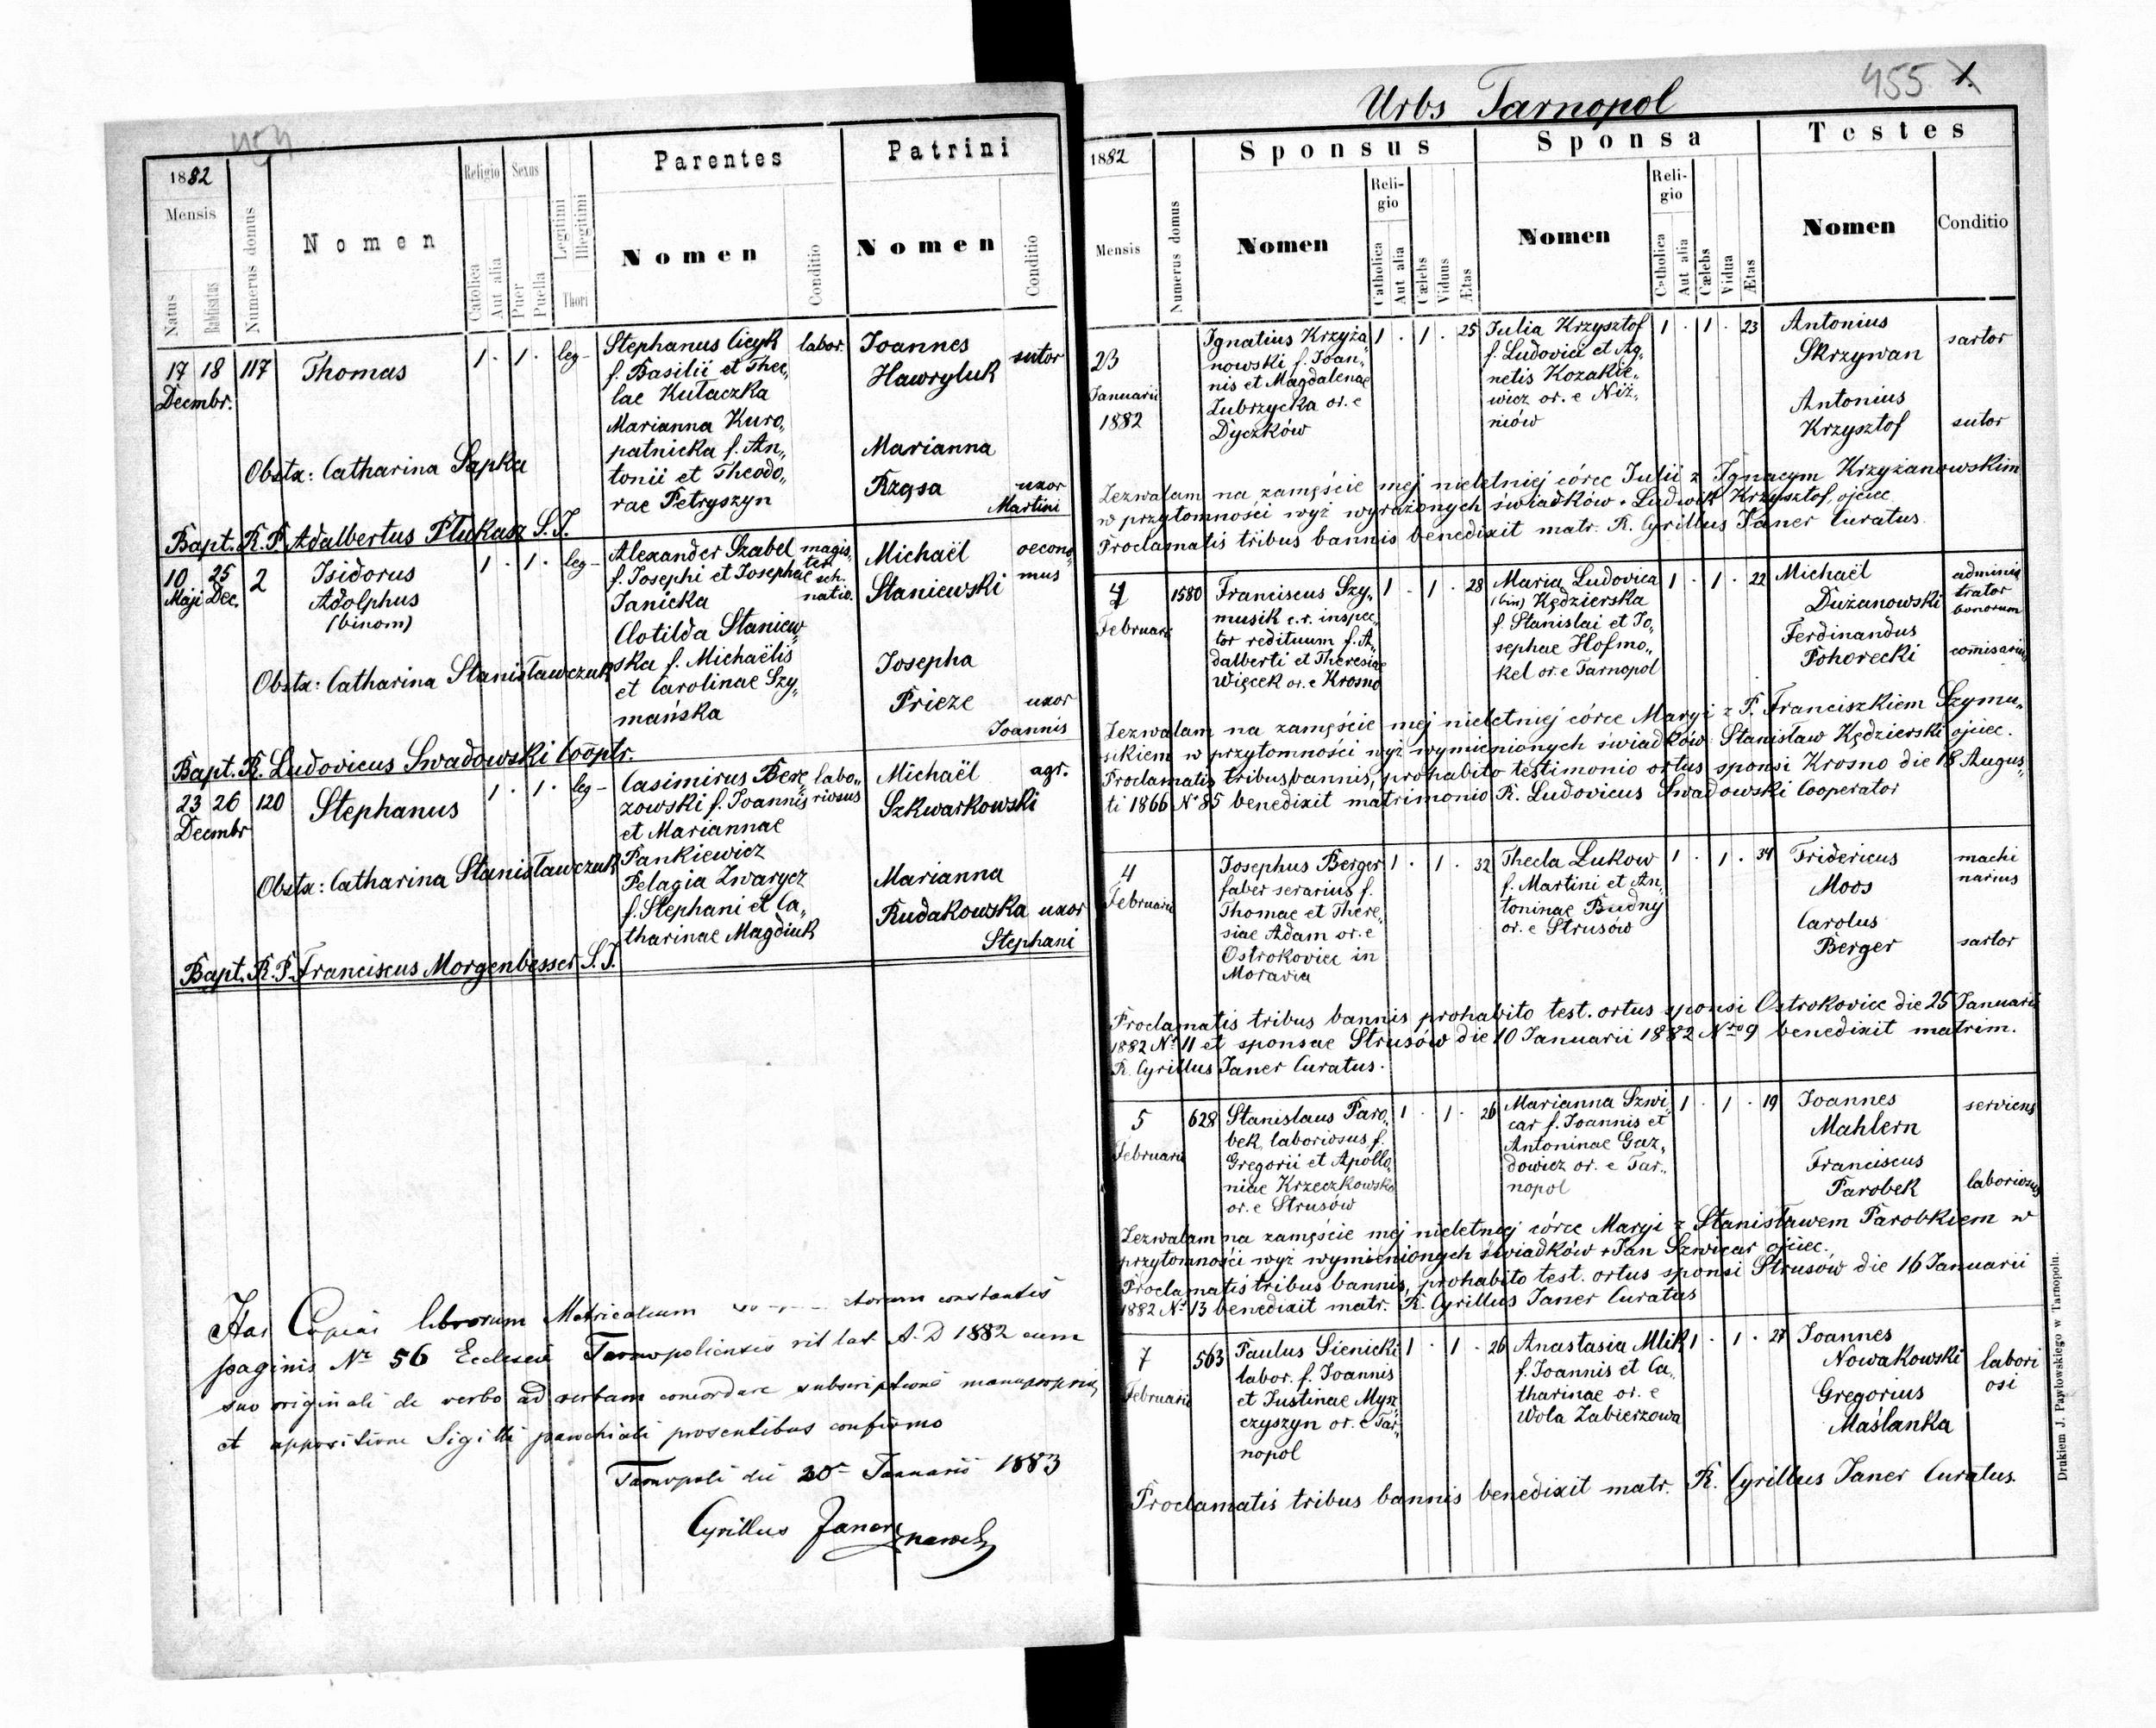 454
1882
Mensis
Natus
Babtisatus
Numerus domus
Nomen
Religio
Catolica
Aut alia
Sexus
Puer
Puella
Legitimi
Illegitimi
Thori
Parentes
Nomen
Conditio
Patrini
Nomen
Conditio
17 18 117 Thomas 1 . 1 . leg- Stephanus Cicyk labor. Joannes
Decembr. f. Basilii et Thec„ Hawryluk sutor
lae Kutaczka
Marianna Kuro„
patnicka f. An„ Marianna
Obstx: Catharina Sapka tonii et Theodo„ Rzęsa uxor
rae Petryszyn Martini
Bapt. R. P. Adalbertus Plukasz S.J.
10 25 2 Isidorus 1 . 1 . leg- Alexander Szabel magis„ Michaël oecono„
Maji Dec. Adolphus f. Josephi et Josephae ter sch. Staniewski mus
(binom) Janicka natio.
Clotilda Staniew„
ska f. Michaëlis Josepha
Obstx: Catharina Stanisławczuk et Carolinae Szy„ Prieze uxor
mańska Joannis
Bapt. R. Ludovicus Swadowski Cooptr.
23 26 120 Stephanus 1 . 1 . leg- Casimirus Bere„ labo„ Michaël agr.
Decmbr zowski f. Joannis riosus Szkwarkowski
et Mariannae
Pankiewicz
Obstx: Catharina Stanisławczuk Pelagia Zwarycz Marianna
f. Stephani et Ca„ Rudakowska uxor
tharinae Magdiuk Stephani
Bapt. R. P. Franciscus Morgenbesser S.J.
Has Copias librorum Metricalium constantes
paginis Nr 56 Ecclesiae Tarnopoliensis rit lat A. D 1882 cum
suo originali de verbo ad verbum concordare subscriptione manupropria
et appositione Sigilli parochiali presentibus confirmo
Tarnopoli die 20 Januarii 1883
Cyrillus Janer
455 1.
Urbs Tarnopol
1882
Mensis
Numerus domus
Sponsus
Nomen
Religio
Catholica
Aut alia
Cælebs
Viduus
Ætas
Sponsa
Nomen
Religio
Catholica
Aut alia
Cælebs
Vidua
Ætas
Testes
Nomen
Conditio
23 Ignatius Krzyża„ 1 . 1 . 25 Julia Krzysztof 1 . 1 . 23 Antonius
Januarii nowski f. Joan„ f. Ludovici et Ag„ Skrzywan sartor
1882 nis et Magdalenae netis Kozakie„
Zubrzycka or. e wicz or. e Niż„ Antonius
Dyczków niów Krzysztof sutor
Zezwalam na zamęście mej nieletniej córce Julii z Ignacym Krzyżanowskim
w przytomności wyż wyrażonych świadków + Ludwik Krzysztof, ojciec
Proclamatis tribus bannis benedixit matr. R. Cyrillus Janer Curatus.
4 1580 Franciscus Szy„ 1 . 1 . 28 Maria Ludovica 1 . 1 . 22 Michaël adminis
Februarii musik c.r. inspec„ (bin) Kędzierska Dużanowski trator
tor redituum f. A„ f. Stanislai et Jo„ bonorum
dalberti et Theresiae sephae Hofmo„ Ferdinandus
Więcek or. e Krosno kel or. e Tarnopol Pohorecki comisarius
Zezwalam na zamęście mej nieletniej córce Maryi z P. Franciszkiem Szymu„
sikiem w przytomności wyż wymienionych świadków Stanisław Kędzierski ojciec.
Proclamatis tribus bannis, prohabito testimonio ortus sponsi Krosno die 18 Augus„
ti 1866 No 85 benedixit matrimonio R. Ludovicus Swadowski Cooperator
4 Josephus Berger 1 . 1 . 32 Thecla Lukow 1 . 1 . 34 Fridericus machi
Februarii faber serarius f. f. Martini et An„ Moos narius
Thomae et There„ toninae Budny
siae Adam or. e or. e Strusów Carolus
Ostrokovice in Berger sartor
Moravia
Proclamatis tribus bannis prohabito test. ortus sponsi Ostrokovice die 25 Januarii
1882 No 11 et sponsae Strusów die 10 Januarii 1882 Nro 9 benedixit matrim.
R. Cyrillus Janer Curatus.
5 628 Stanislaus Paro„ 1 . 1 . 26 Marianna Szwi„ 1 . 1 . 19 Joannes serviens
Februarii bek laboriosus f. car f. Joannis et Mahlern
Gregorii et Apollo„ Antoninae Gaz„
niae Krzeczkowska dowicz or. e Tar„ Franciscus
or. e Strusów nopol Parobek laboriosus
Zezwalam na zamęście mej nieletniej córce Maryi z Stanisławem Parobkiem w
przytomności wyż wymienionych świadków + Jan Szwicar ojciec.
Proclamatis tribus bannis, prohabito test. ortus sponsi Strusów die 16 Januarii
1882 No 13 benedixit matr. R. Cyrillus Janer Curatus
7 563 Paulus Sienicki 1 . 1 . 26 Anastasia Mlik 1 . 1 . 27 Joannes
Februarii labor. f. Joannis f. Joannis et Ca„ Nowakowski labori
et Justinae Mysz„ tharinae or. e Gregorius osi
czyszyn or. e Tar„ Wola Zabierzowa Maślanka
nopol
Proclamatis tribus bannis benedixit matr. R. Cyrillus Janer Curatus.
Drukiem J. Pawłowskiego w Tarnopolu.